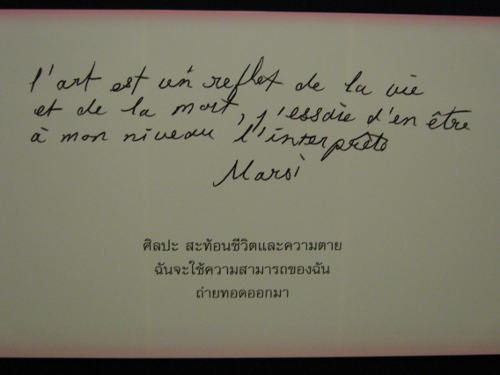 l'art est un reflet de la vie
et de la mort, j'essaie d'en être
à mon niveau l'interprète
Marsi
ศิลปะ สะท้อนชีวิตและความตาย
ฉันจะใช้ความสามารถของฉัน
ถ่ายทอดออกมา